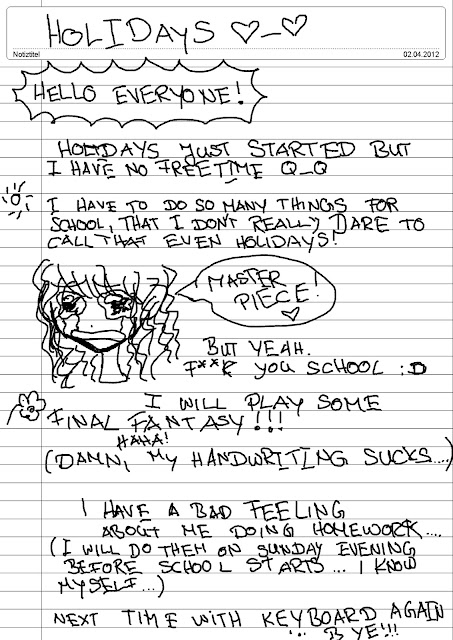 HOLIDAYS ♡_♡
Notiztitel 02.04.2012
HELLO EVERYONE!
HOLIDAYS JUST STARTED BUT
I HAVE NO FREETIME Q_Q
I HAVE TO DO SO MANY THINGS FOR
SCHOOL, THAT I DON'T REALLY DARE TO
CALL THAT EVEN HOLIDAYS!
MASTER
PIECE!
♡
BUT YEAH.
F**K YOU SCHOOL :D
I WILL PLAY SOME
FINAL FANTASY!!!
HAHA!
(DAMN, MY HANDWRITING SUCKS....)
I HAVE A BAD FEELING
ABOUT ME DOING HOMEWORK....
(I WILL DO THEM ON SUNDAY EVENING
BEFORE SCHOOL STARTS... I KNOW
MYSELF...)
NEXT TIME WITH KEYBOARD AGAIN
... BYE!!!